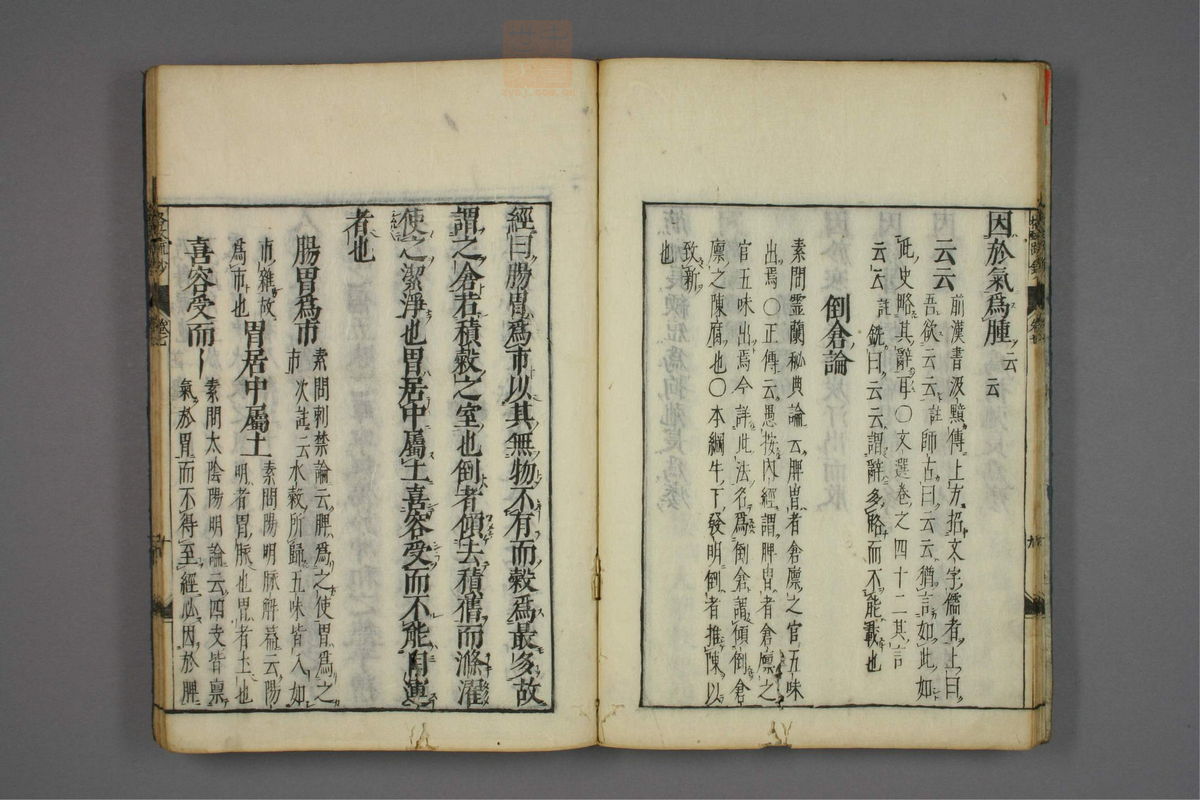 因於氣爲腫云云
云云前漢書汲黯傳上方招文字儒者上曰
吾欲云云註師古曰云云猶言如此如
此史略其辭耳〇文選卷之四十二其言
云云註銑曰云云謂辭多略而不能載也
倒倉論
素問靈蘭秘典論云脾胃者倉廪之官五味
出焉〇正傳云愚按內經謂脾胃者倉廪之
官五味出焉今詳此法名爲倒倉謂傾倒倉
廪之陳腐也〇本綱牛下發明倒者推陳以
致新也
經曰腸胃爲市以其無物不有而穀爲最多故
謂之倉若積穀之室也倒者傾去積舊而滌濯
使之潔淨也胃居中屬土喜容受而不能自運
者也
腸胃爲市素問刺禁論云脾爲之使胃爲之
市次註云水穀所歸五味皆入如
市雜故爲市也
胃居中屬土素問陽明脉解篇云陽
明者胃脉也胃者土也
喜容受而〡素問太陰陽明論云四支皆禀
氣於胃而不得至經必因於脾